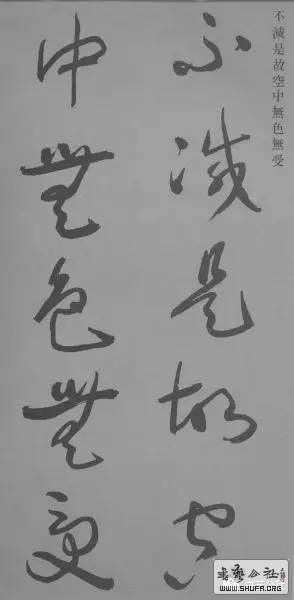 不減是故空中無色無受
不減是故空
中無色無受
书艺公社
WWW.SHUFA.ORG